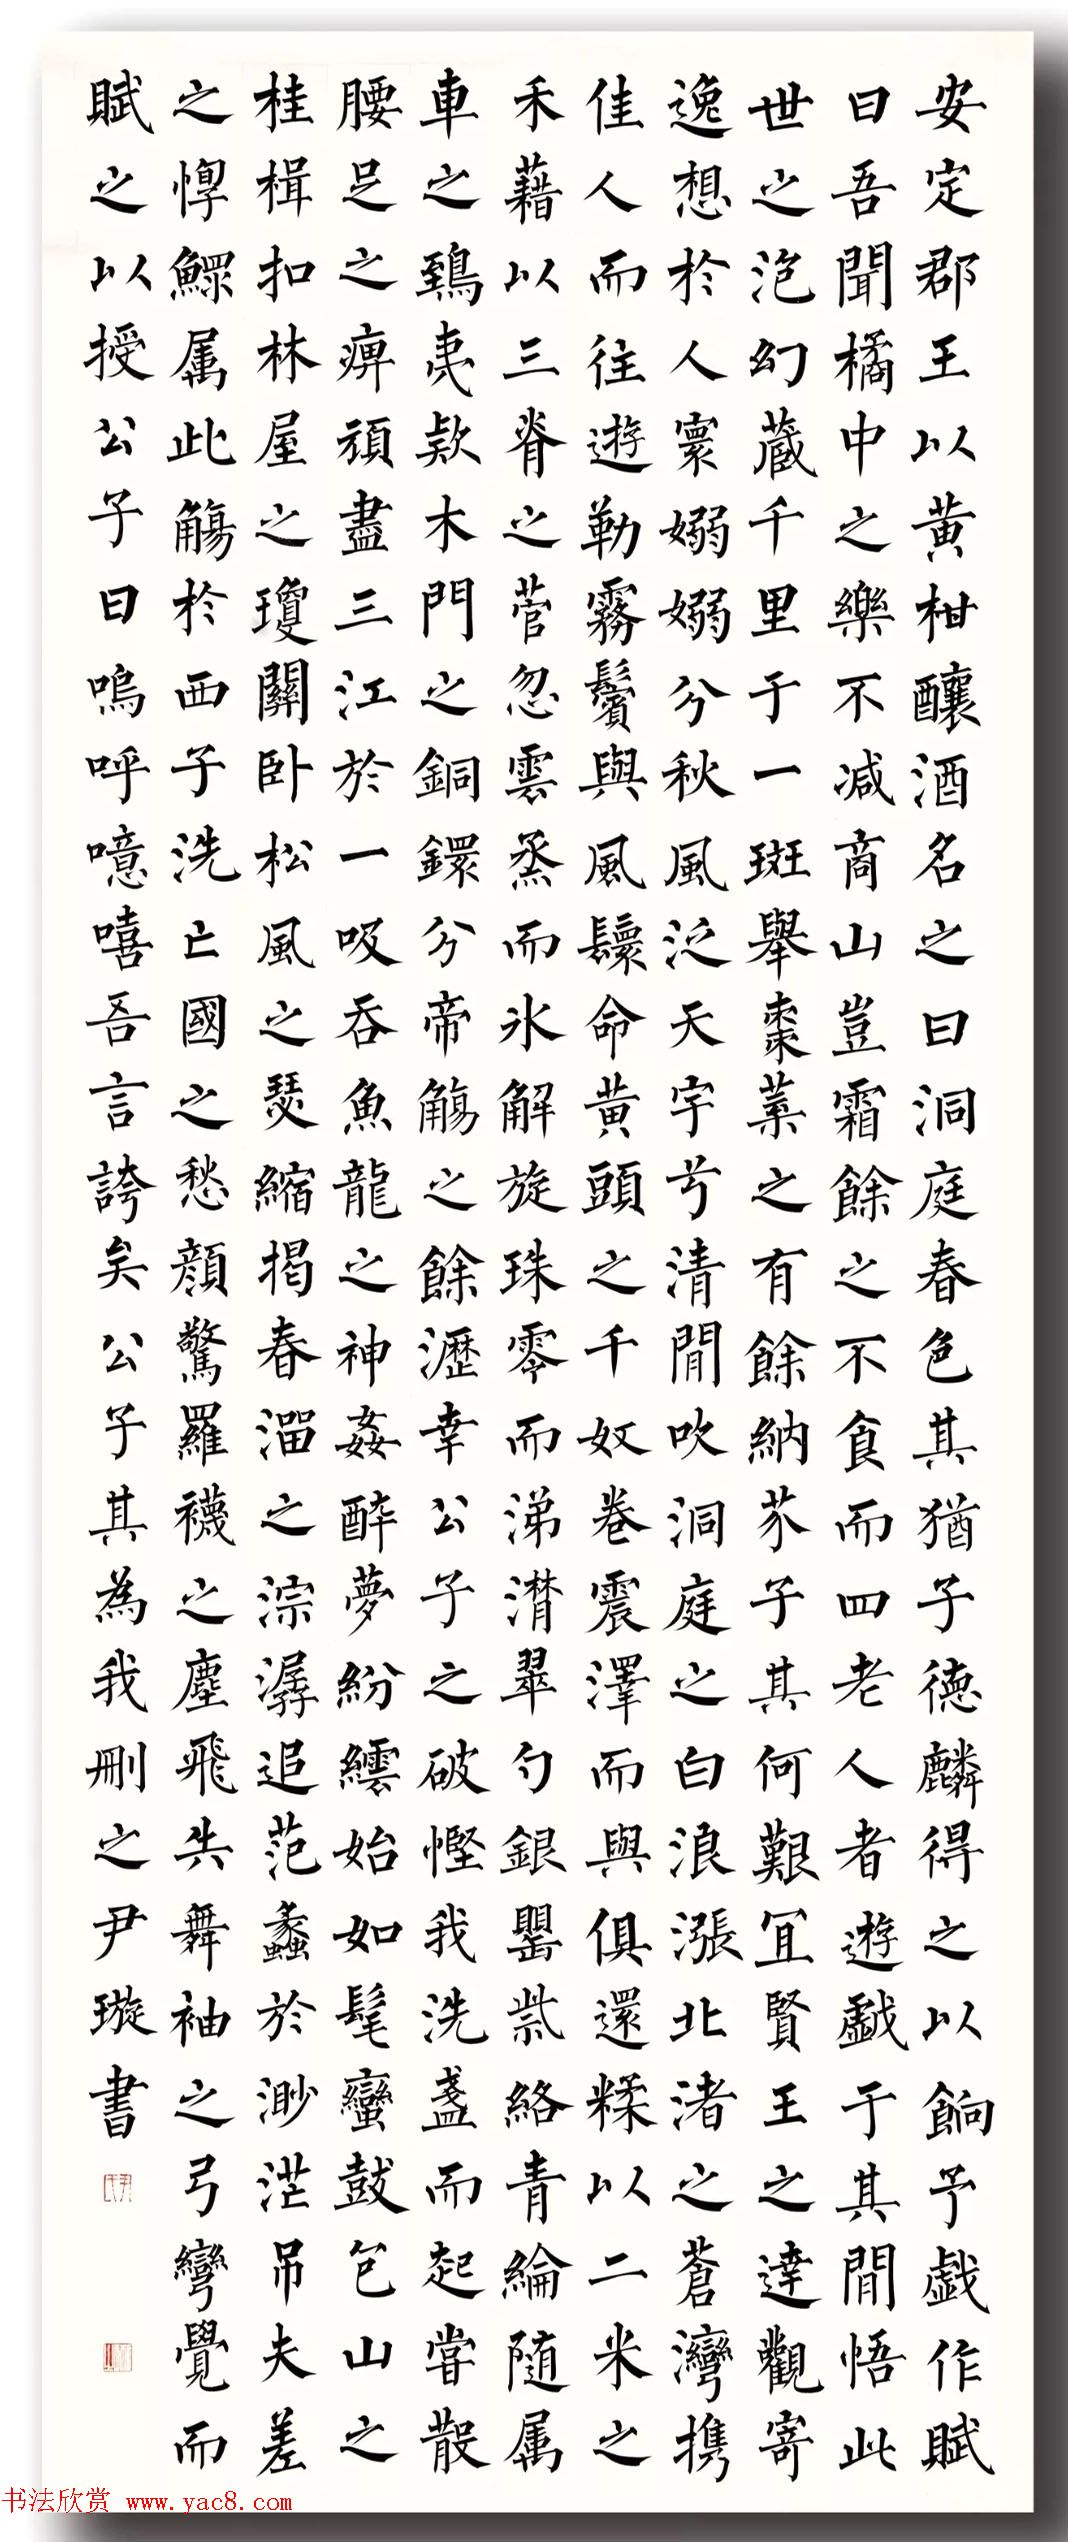 安定郡王以黄柑釀酒名之曰洞庭春色其猶子德麟得之以餉予戱作賦
曰吾聞橘中之樂不减商山豈霜餘之不食而四老人者遊戱于其間悟此
世之泡幻蔵千里于一斑舉棗葉之有餘納芥子其何艱冝賢王之達觀寄
逸想於人寰嫋嫋兮秋風泛天宇兮清閒吹洞庭之白浪漲北渚之蒼灣携
佳人而往遊勒霧鬢與風鬟命黄頭之千奴卷震澤而與俱還糅以二米之
禾藉以三脊之菅忽雲烝而氷解旋珠零而涕潸翠勺銀罌紫絡青綸随属
車之鴟夷款木門之銅鐶分帝觴之餘瀝幸公子之破慳我洗盞而起嘗散
腰足之痹頑盡三江於一吸吞魚龍之神姦醉夢紛紜始如髦蠻鼓包山之
桂楫扣林屋之瓊關卧松風之瑟縮揭春溜之淙潺追范蠡於渺茫吊夫差
之惸鰥属此觴於西子洗亡國之愁顔驚羅襪之塵飛失舞袖之弓彎覺而
賦之以授公子曰嗚呼噫嘻吾言誇矣公子其為我刪之尹璇書
书法欣赏 www.yac8.com